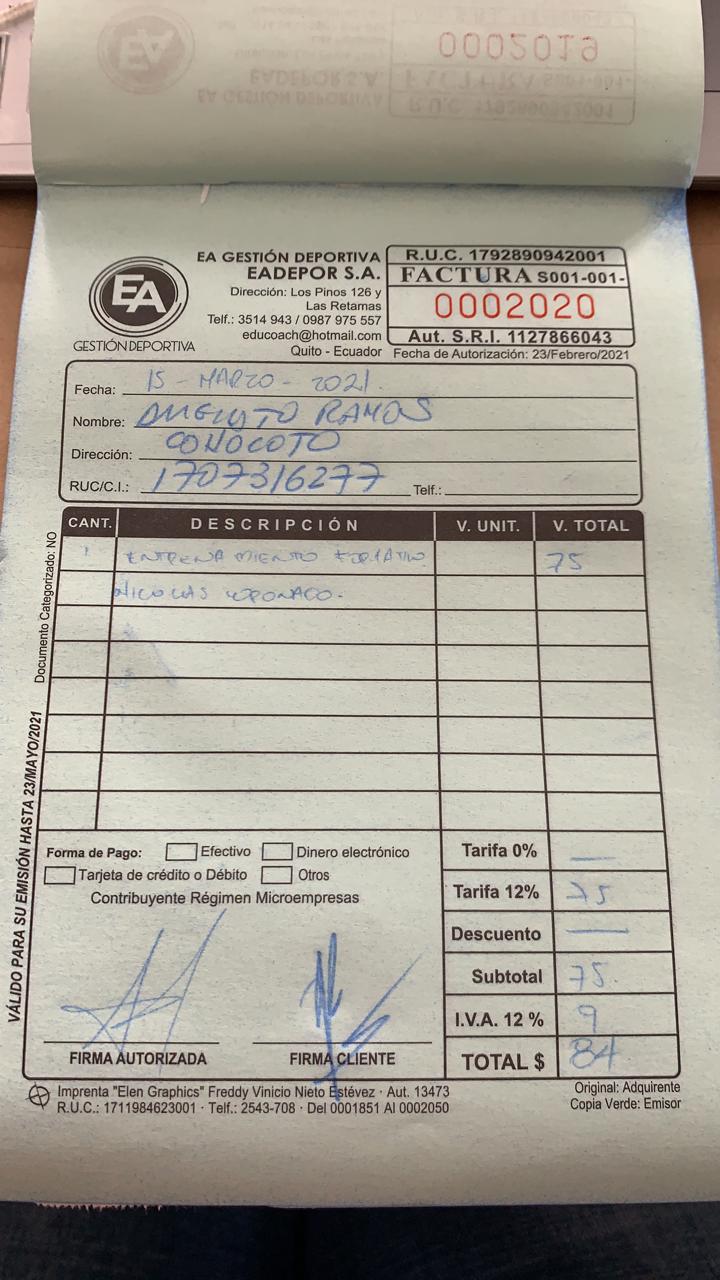 0002019
EADEPOR S.A.
FACTURA S001-001-
EA GESTIÓN DEPORTIVA
R.U.C. 1792890942001
EA
GESTIÓN DEPORTIVA
EA GESTIÓN DEPORTIVA
EADEPOR S.A.
Dirección: Los Pinos 126 y
Las Retamas
Telf.: 3514 943 / 0987 975 557
educoach@hotmail.com
Quito - Ecuador
R.U.C. 1792890942001
FACTURA S001-001-
0002020
Aut. S.R.I. 1127866043
Fecha de Autorización: 23/Febrero/2021
Fecha: 15 - MARZO - 2021.
Nombre: AUGUSTO RAMOS
Dirección: CONOCOTO
RUC/C.I.: 1707316277 Telf.:
CANT. DESCRIPCIÓN V. UNIT. V. TOTAL
1 ENTRENAMIENTO FORMATIVO 75
NICOLAS CORONADO.
Documento Categorizado: NO
VÁLIDO PARA SU EMISIÓN HASTA 23/MAYO/2021
Forma de Pago: Efectivo Dinero electrónico
Tarjeta de crédito o Débito Otros
Contribuyente Régimen Microempresas
FIRMA AUTORIZADA FIRMA CLIENTE
Tarifa 0% —
Tarifa 12% 75
Descuento —
Subtotal 75.
I.V.A. 12 % 9
TOTAL $ 84
Imprenta "Elen Graphics" Freddy Vinicio Nieto Estévez · Aut. 13473
R.U.C.: 1711984623001 · Telf.: 2543-708 · Del 0001851 Al 0002050
Original: Adquirente
Copia Verde: Emisor